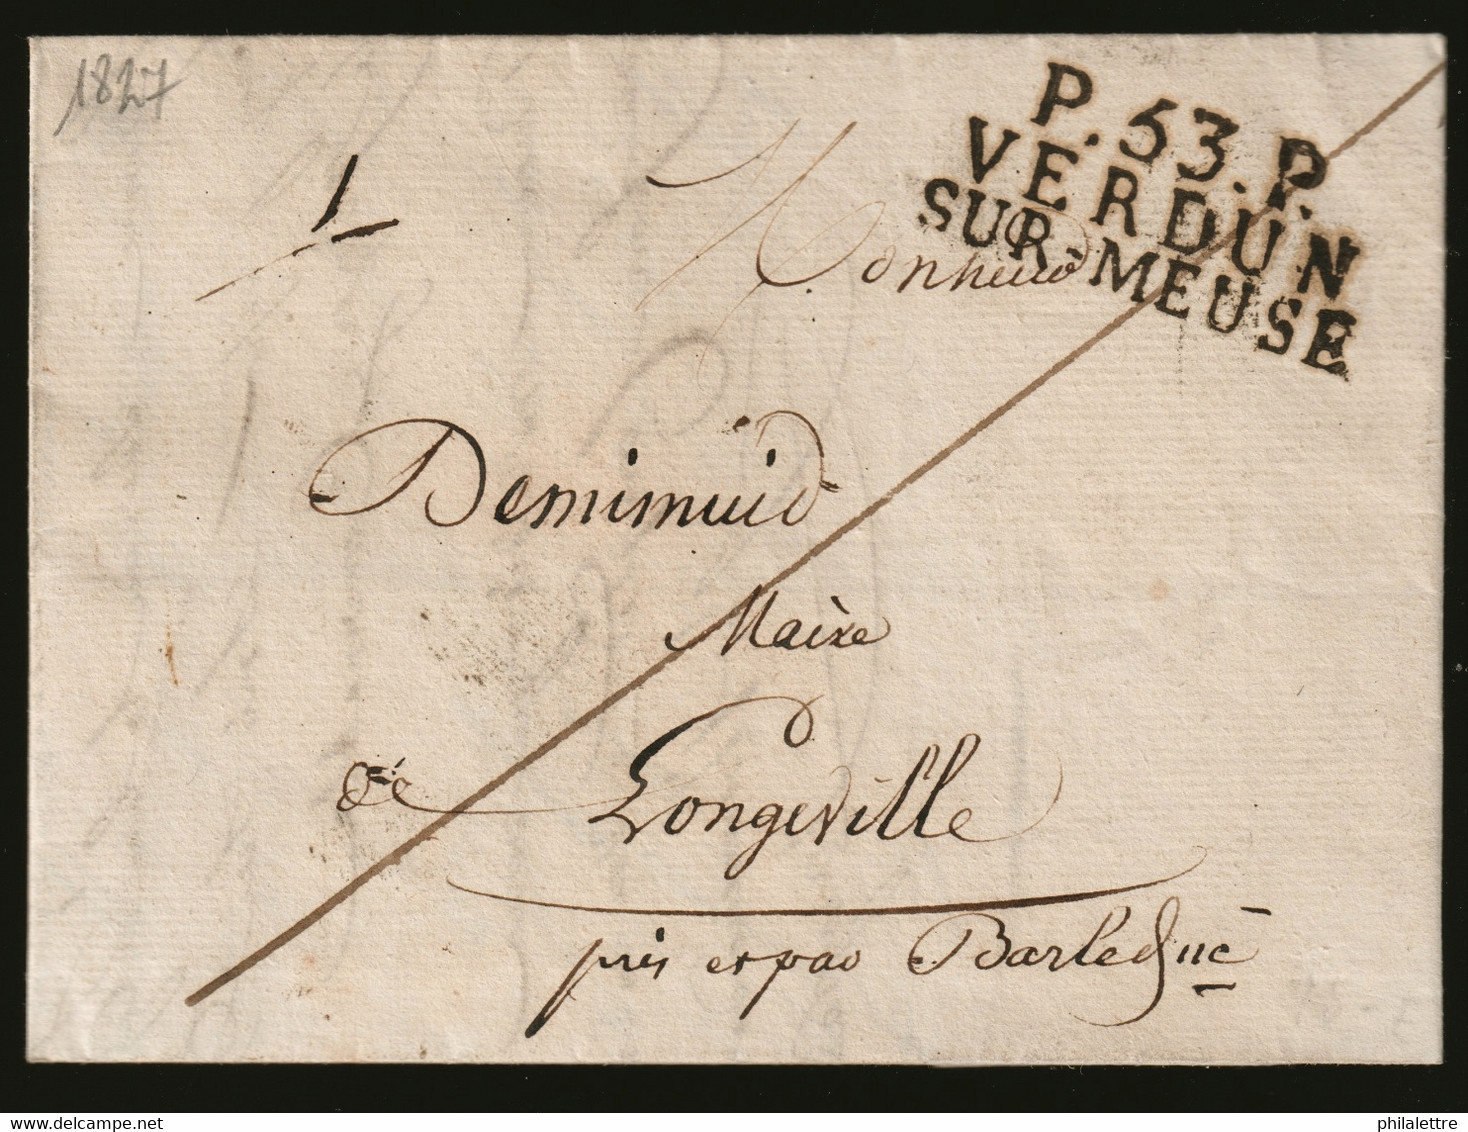 1827
P. 53. P.
VERDUN
SUR-MEUSE
Monsieur
Demimuid
Maire
de Longeville
près et par Barleduc
philalettre